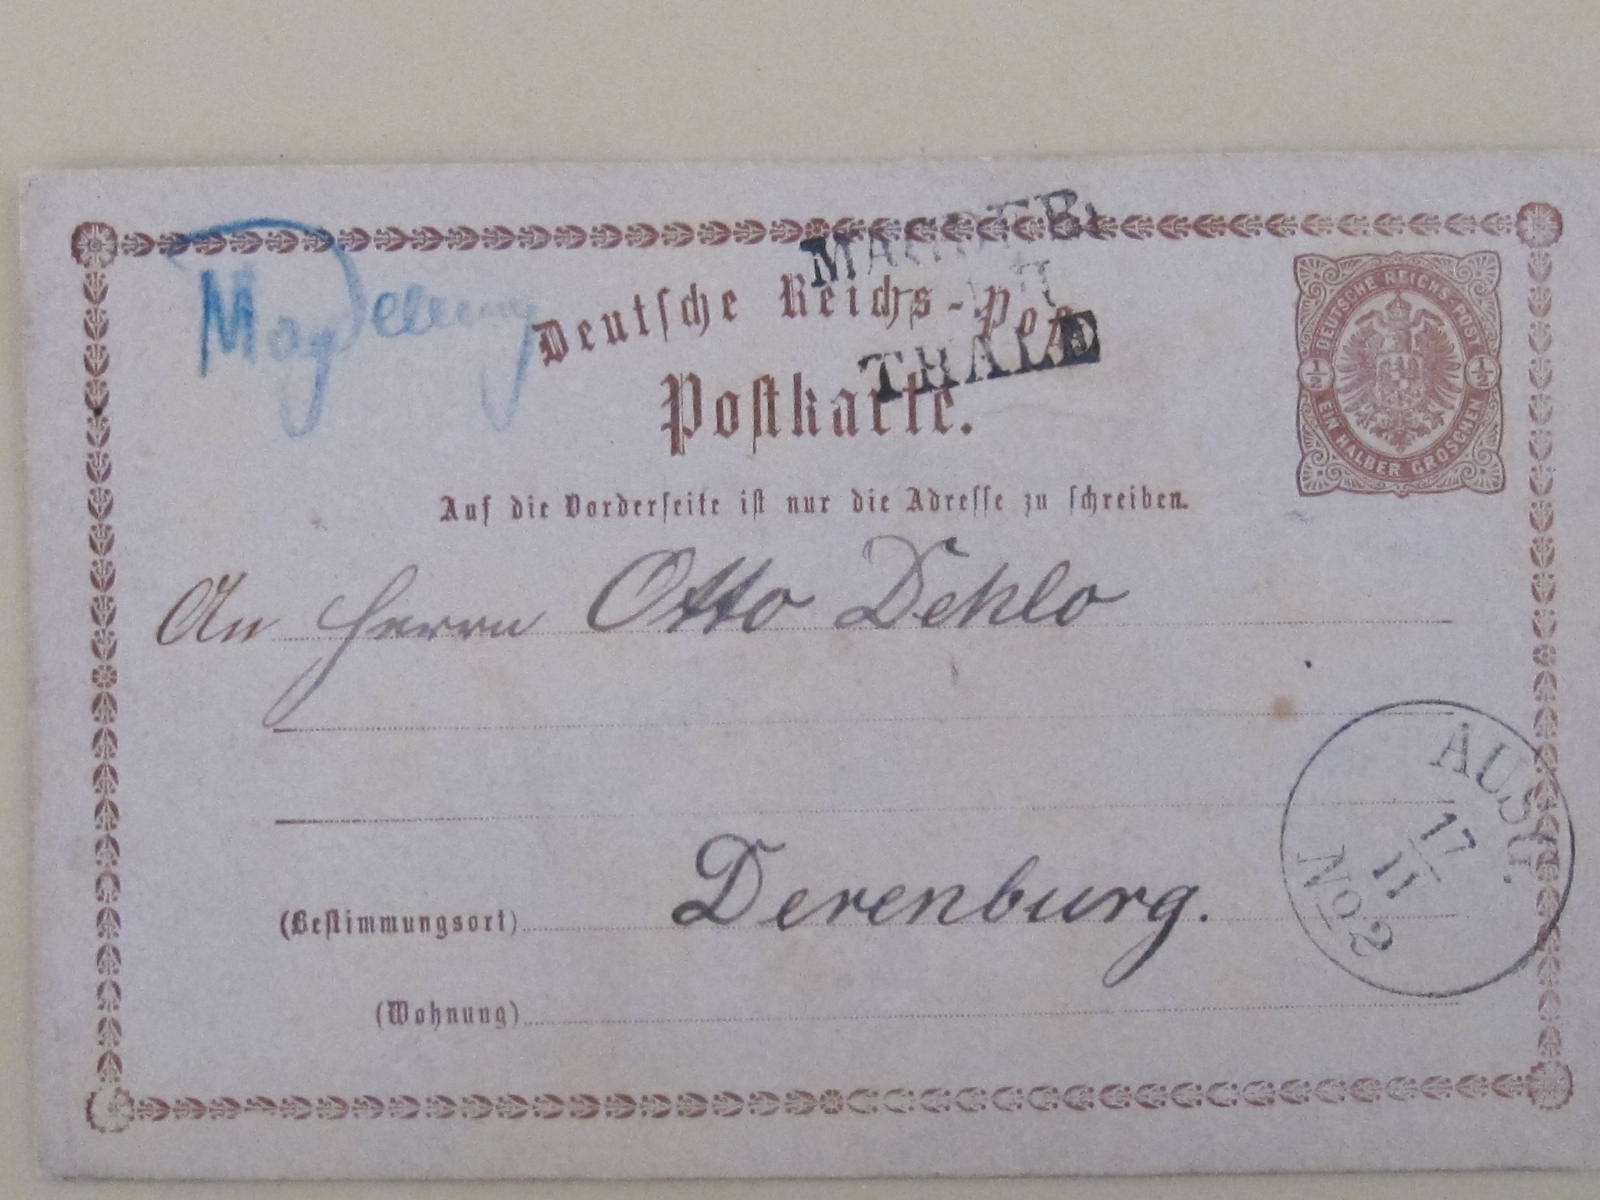 Magdeburg
MAGDEB.
THALE
Deutsche Reichs-Post
Postkarte.
DEUTSCHE REICHS-POST
½ ½
EIN HALBER GROSCHEN
Auf die Vorderseite ist nur die Adresse zu schreiben.
An Herrn Otto Dehlo
AUSG.
17
11
No 2
(Bestimmungsort) Derenburg.
(Wohnung)